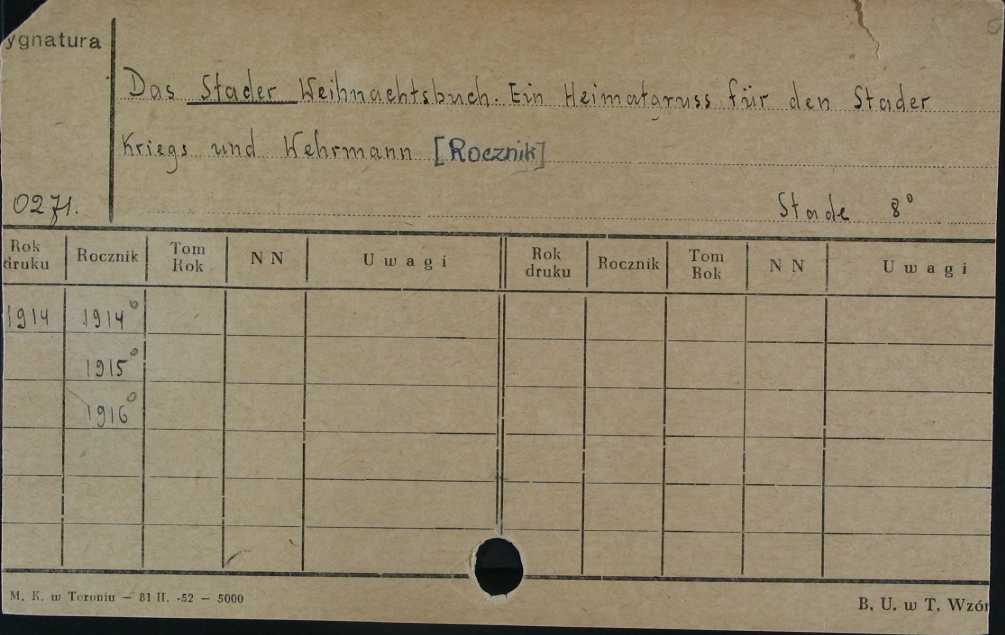 ygnatura
Das Stader Weihnachtsbuch. Ein Heimatgruss für den Stader
Kriegs und Wehrmann [Rocznik]
0271. Stade 8°
Rok druku Rocznik Tom Rok N N U w a g i Rok druku Rocznik Tom Rok N N U w a g i
1914 1914°
1915°
1916°
M. K. w Toruniu — 81 II. -52 — 5000 B. U. w T. Wzór